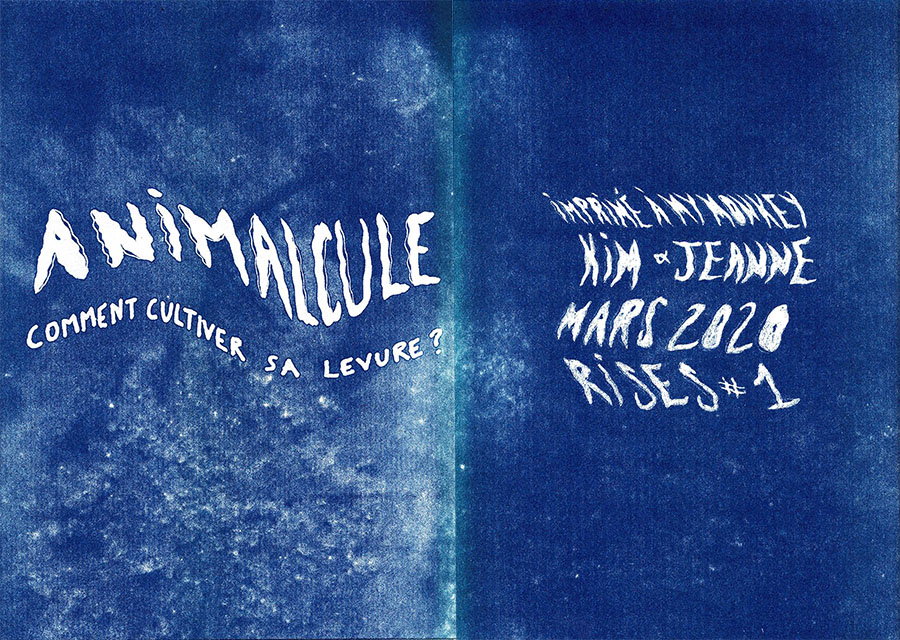 ANiMALCULE
COMMENT CULTIVER SA LEVURE?
iMPRiMÉ À MY MONKEY
KiM & JEANNE
MARS 2020
RiSES #1